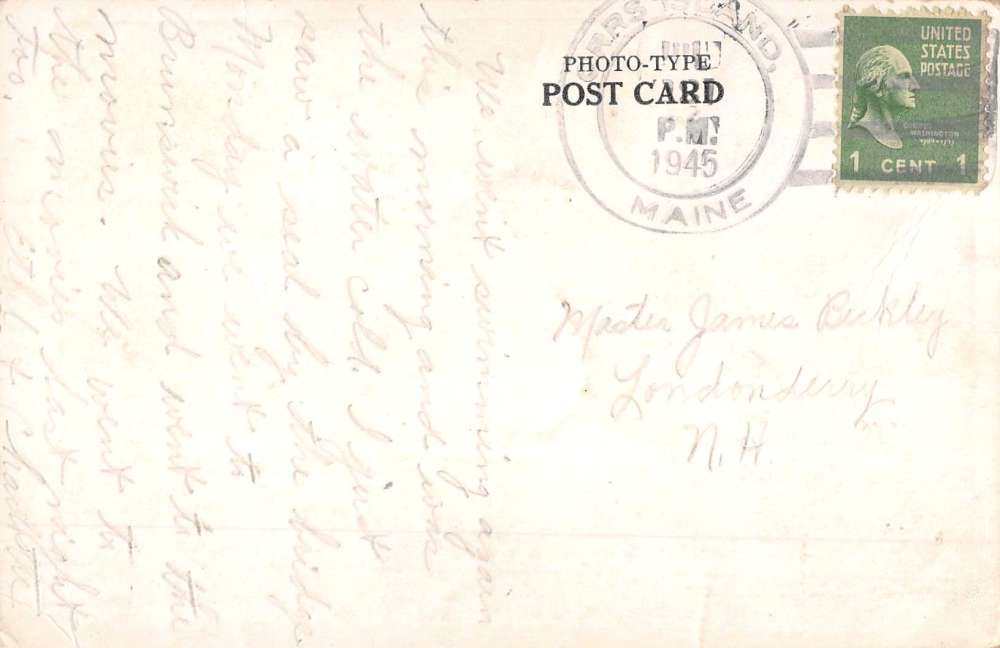 ORRS ISLAND,
P.M.
1945
MAINE
PHOTO-TYPE
POST CARD
UNITED
STATES
POSTAGE
GEORGE
WASHINGTON
1 CENT 1
Master James Beckley
Londonderry
N.H.
We went swimming again
this morning and was
the water cold. I just
saw a seal by the bridge
Monday we went to
Brunswick and went to the
movies. We went to
the movies last night
too.